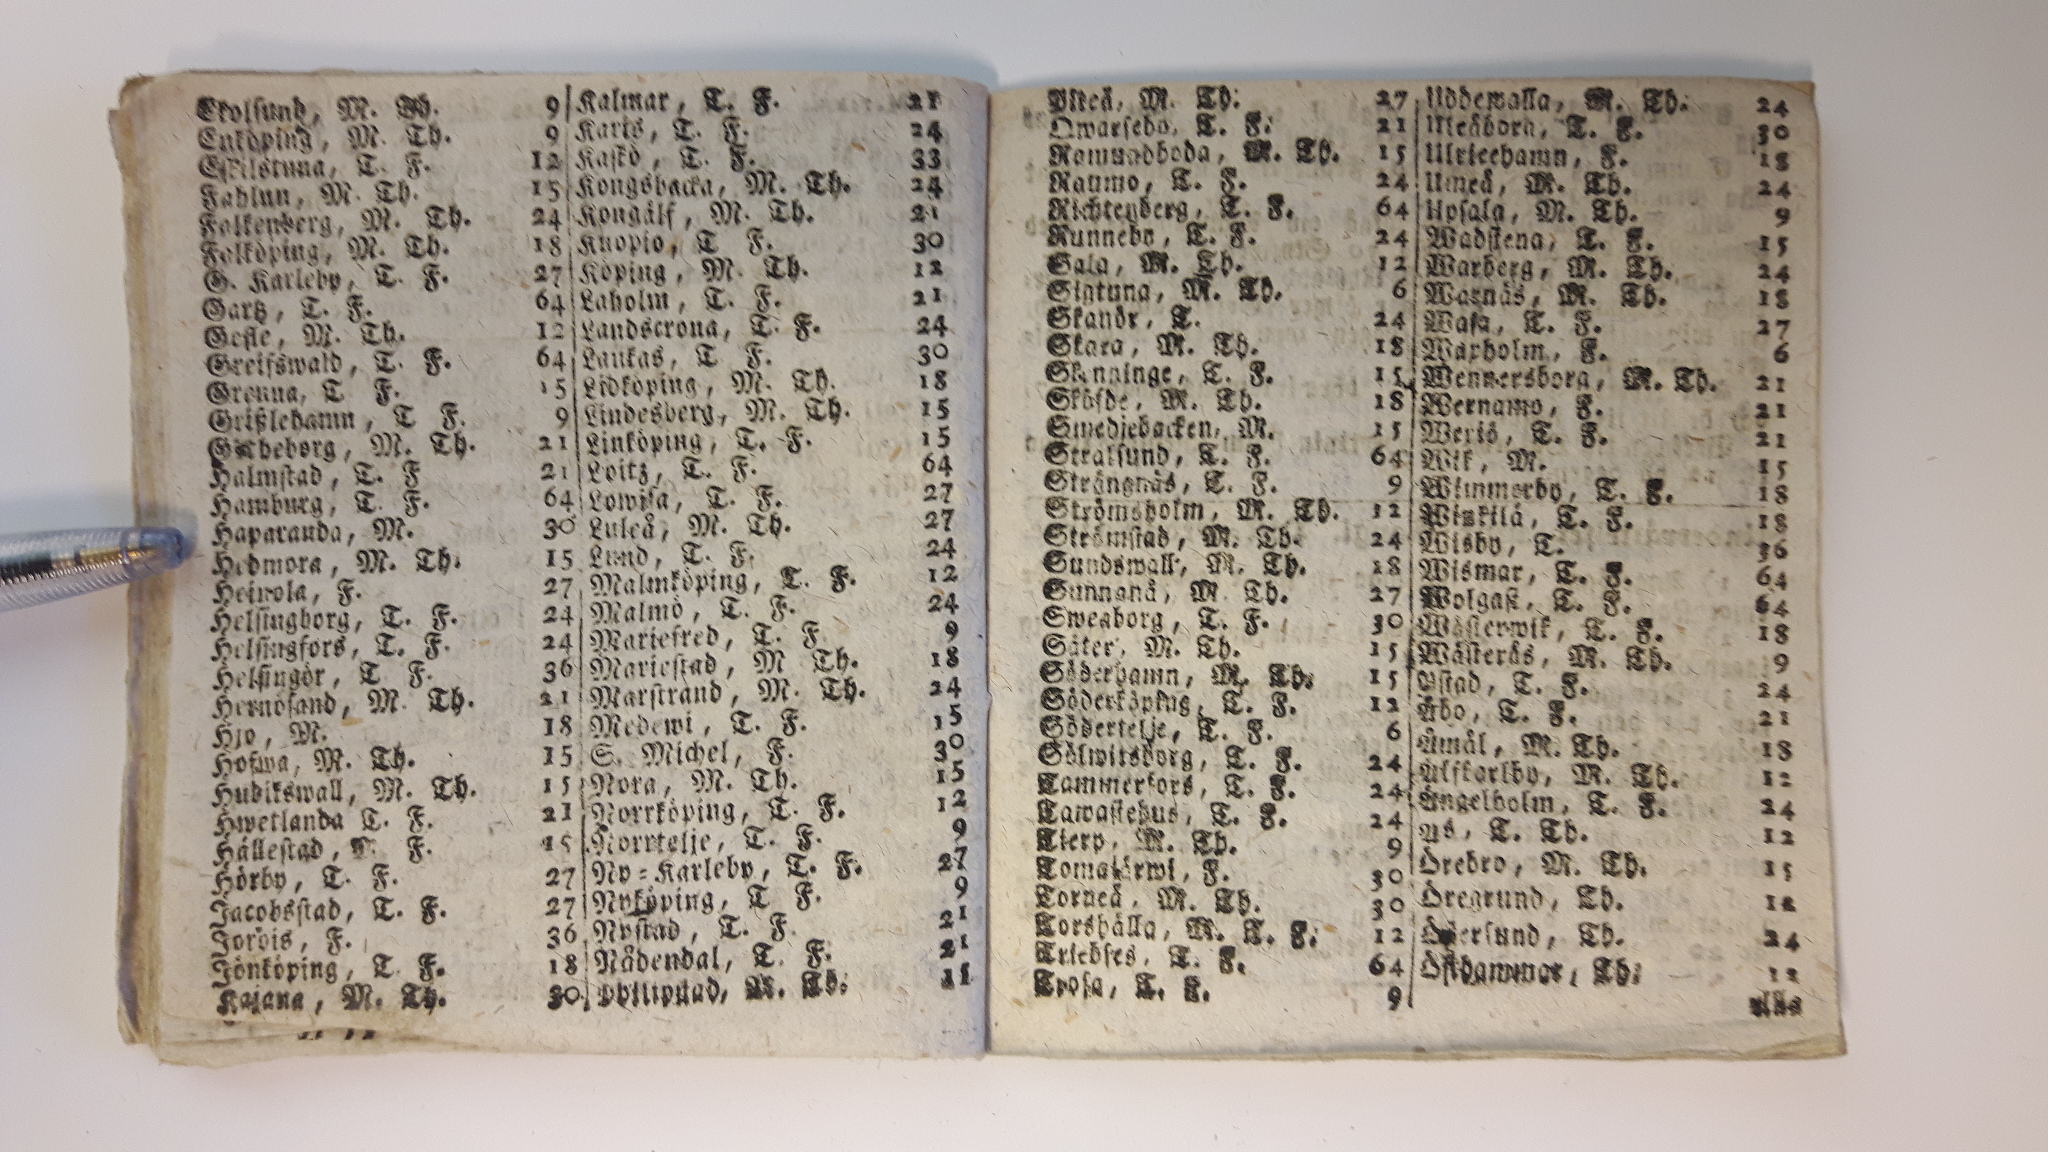 Ekolsund, M. Th. 9
Enköping, M. Th. 9
Eskilstuna, T. F. 12
Fahlun, M. Th. 15
Falkenberg, M. Th. 24
Falköping, M. Th. 18
G. Karleby, T. F. 27
Gartz, T. F. 64
Gefle, M. Th. 12
Greifswald, T. F. 64
Grenna, T F. 15
Grißlehamn, T F. 9
Götheborg, M. Th. 21
Halmstad, T. F 21
Hamburg, T. F. 64
Haparanda, M. 30
Hedmora, M. Th. 15
Heinola, F. 27
Helsingborg, T. F. 24
Helsingfors, T. F. 24
Helsingör, T F. 36
Hernösand, M. Th. 21
Hjo, M. 18
Hofwa, M. Th. 15
Hudikswall, M. Th. 15
Hwetlanda T. F. 21
Hällestad, F. 15
Hörby, T. F. 27
Jacobsstad, T. F. 27
Jorois, F. 36
Jönköping, T F. 18
Kajana, M. Th. 30
Kalmar, T. F. 21
Karis, T. F. 24
Kaskö, T. F. 33
Kongsbacka, M. Th. 24
Kongälf, M. Th. 21
Kuopio, T F. 30
Köping, M. Th. 12
Laholm, T. F. 21
Landscrona, T. F. 24
Laukas, T F. 30
Lidköping, M. Th. 18
Lindesberg, M. Th. 15
Linköping, T. F. 15
Loitz, T. F. 64
Lowisa, T. F. 27
Luleå, M. Th. 27
Lund, T. F. 24
Malmköping, T. F. 12
Malmö, T. F. 24
Mariefred, T. F. 9
Mariestad, M Th. 18
Marstrand, M. Th. 24
Medewi, T. F. 15
S. Michel, F. 30
Nora, M. Th. 15
Norrköping, T. F. 12
Norrtelje, T. F. 9
Ny=Karleby, T. F. 27
Nyköping, T F. 9
Nystad, T. F. 21
Nådendal, T. F. 21
Philipstad, M. Th.
Piteå, M. Th. 27
Qwarsebo, T. F. 21
Ramundboda, M. Th. 15
Raumo, T. F. 24
Richtenberg, T. F. 64
Runneby, T. F. 24
Sala, M. Th. 12
Sigtuna, M. Th. 6
Skanör, T. 24
Skara, M. Th. 18
Skenninge, T. F. 15
Sköfde, M. Th. 18
Smedjebacken, M. 15
Stralsund, T. F. 64
Strängnäs, T. F. 9
Strömsholm, M. Th. 12
Strömstad, M. Th. 24
Sundswall, M. Th. 18
Sunnanå, M. Th. 27
Sweaborg, T. F. 30
Säter, M. Th. 15
Söderhamn, M. Th. 15
Söderköping, T. F. 12
Södertelje, T. F. 6
Sölwitsborg, T. F. 24
Tammerfors, T. F. 24
Tawastehus, T. F. 24
Tierp, M. Th. 9
Tomajärwi, F. 30
Torneå, M. Th. 30
Torshälla, T. F. 12
Triebses, T. F. 64
Trosa, T. F. 9
Uddewalla, M. Th. 24
Uleåborg, T. F. 30
Ulricehamn, F. 18
Umeå, M. Th. 24
Upsala, M. Th. 9
Wadstena, T. F. 15
Warberg, M. Th. 24
Warnäs, M. Th. 18
Wasa, T. F. 27
Waxholm, F. 6
Wennersborg, M. Th. 21
Wernamo, F. 21
Wexiö, T. F. 21
Wik, M. 15
Wimmerby, T. F. 18
Winkilä, T. F. 18
Wisby, T. 36
Wismar, T. F. 64
Wolgast, T. F. 64
Wästerwik, T. F. 18
Wästerås, M. Th. 9
Ystad, T. F. 24
Åbo, T. F. 21
Åmål, M. Th. 18
Älfkarlby, M. Th. 12
Ängelholm, T. F. 24
T. Th. 12
Örebro, M. Th. 15
Öregrund, Th. 12
Östersund, Th. 24
Östhammar, Th. 12